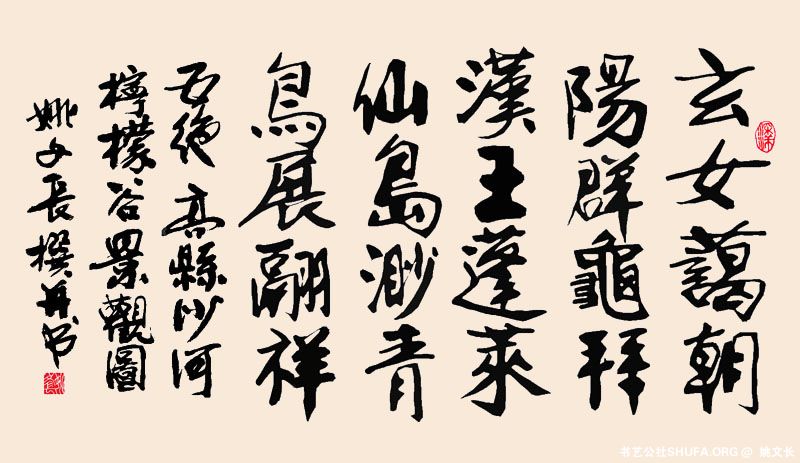 玄女謁朝
陽群龜拜
漢王蓬萊
仙島渺青
鳥展翩祥
五絕 高縣沙河
檸檬谷景觀圖
姚文長撰并书
书艺公社SHUFA.ORG @ 姚文长